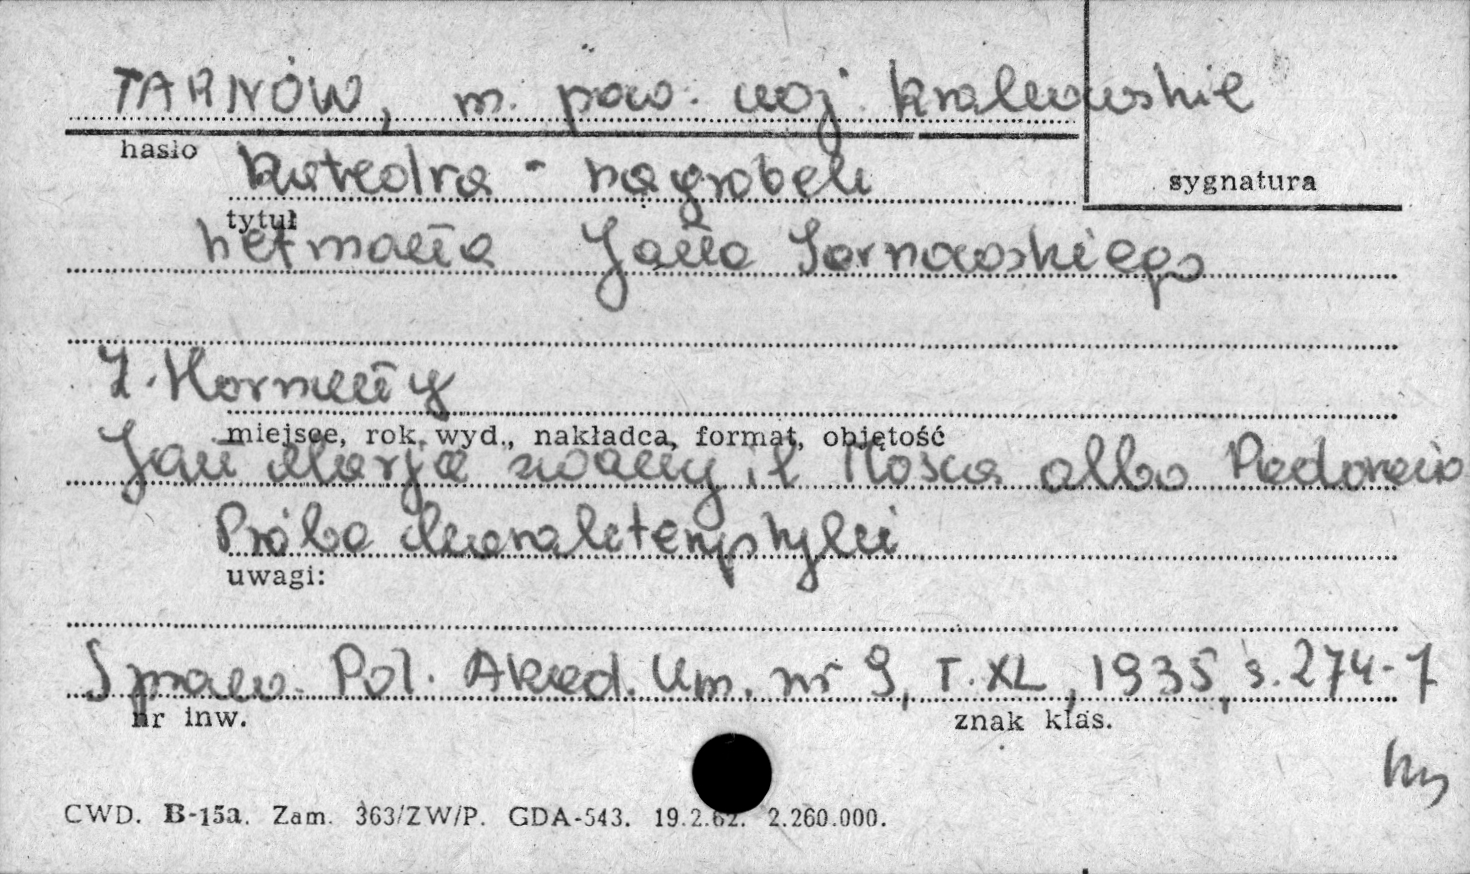 TARNÓW, m. pow. woj. krakowskie
hasło
sygnatura
katedra - nagrobek
tytuł
hetmana Jana Tarnowskiego
J. Hornung
miejsce, rok, wyd., nakładca, format, objętość
Jan Maria zwany il Mosca albo Padovano
Próba charakterystyki
uwagi:
Spraw. Pol. Akad. Um. nr 9, T. XL, 1935, s. 274-7
nr inw.
znak klas.
CWD. B-15a. Zam. 363/ZW/P. GDA-543. 19.2.62. 2.260.000.